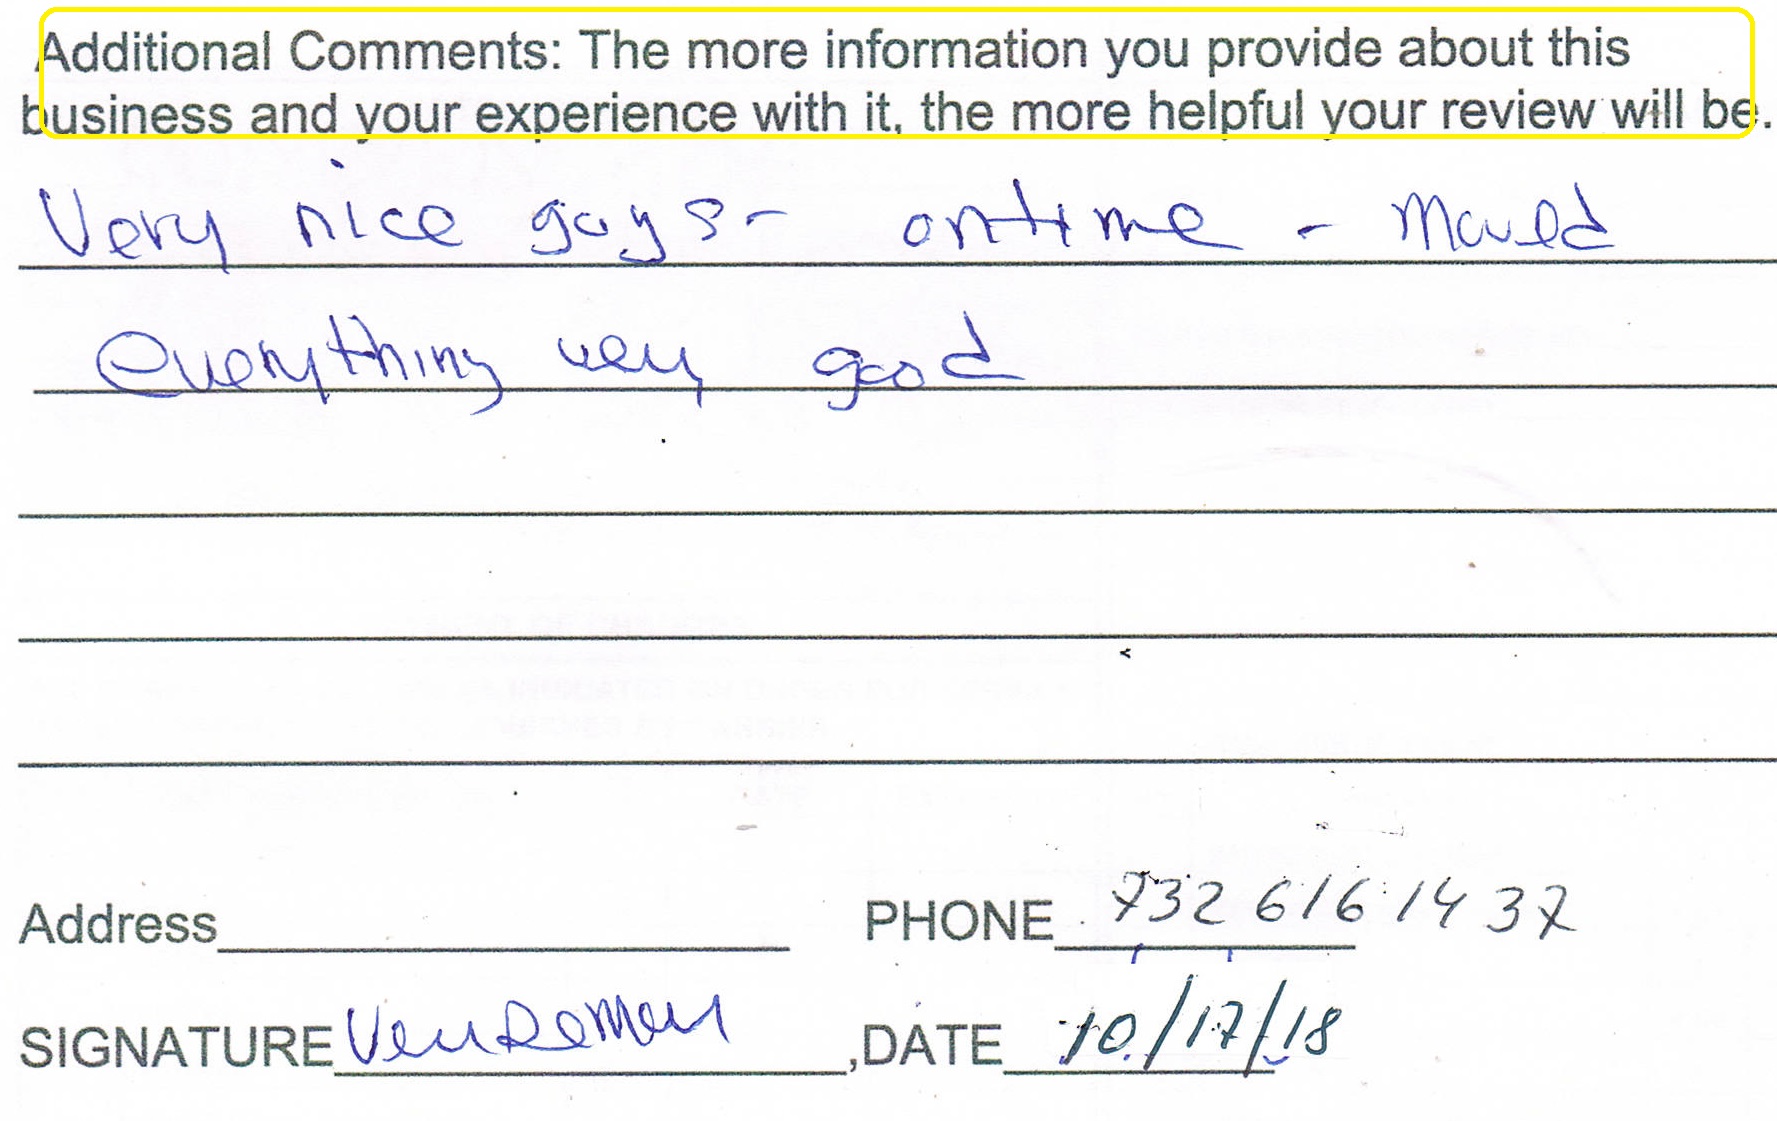 Additional Comments: The more information you provide about this
business and your experience with it, the more helpful your review will be.
Very nice guys - ontime - Moved
everything very good
Address
PHONE 732 616 14 37
SIGNATURE
,DATE 10/17/18